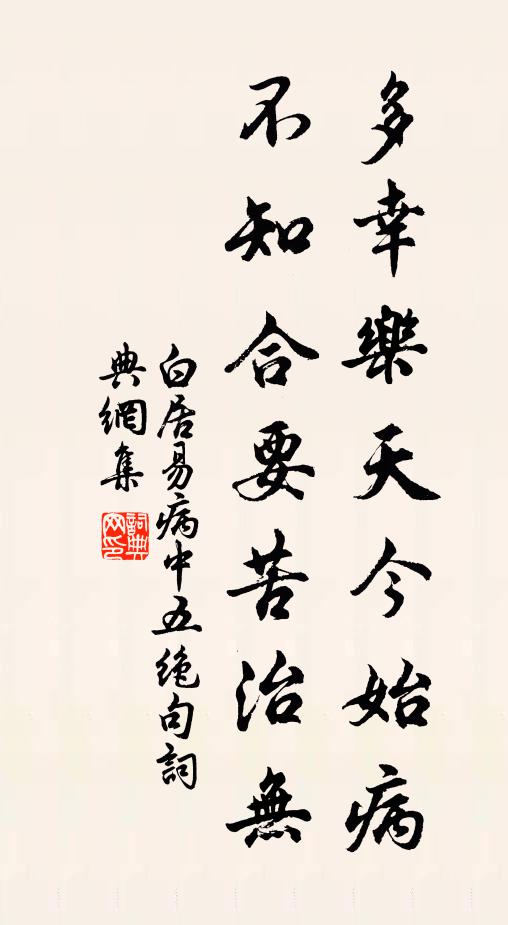 多幸樂天今始病
不知合要苦治無
白居易病中五絕句詞
典網集
詞典網印